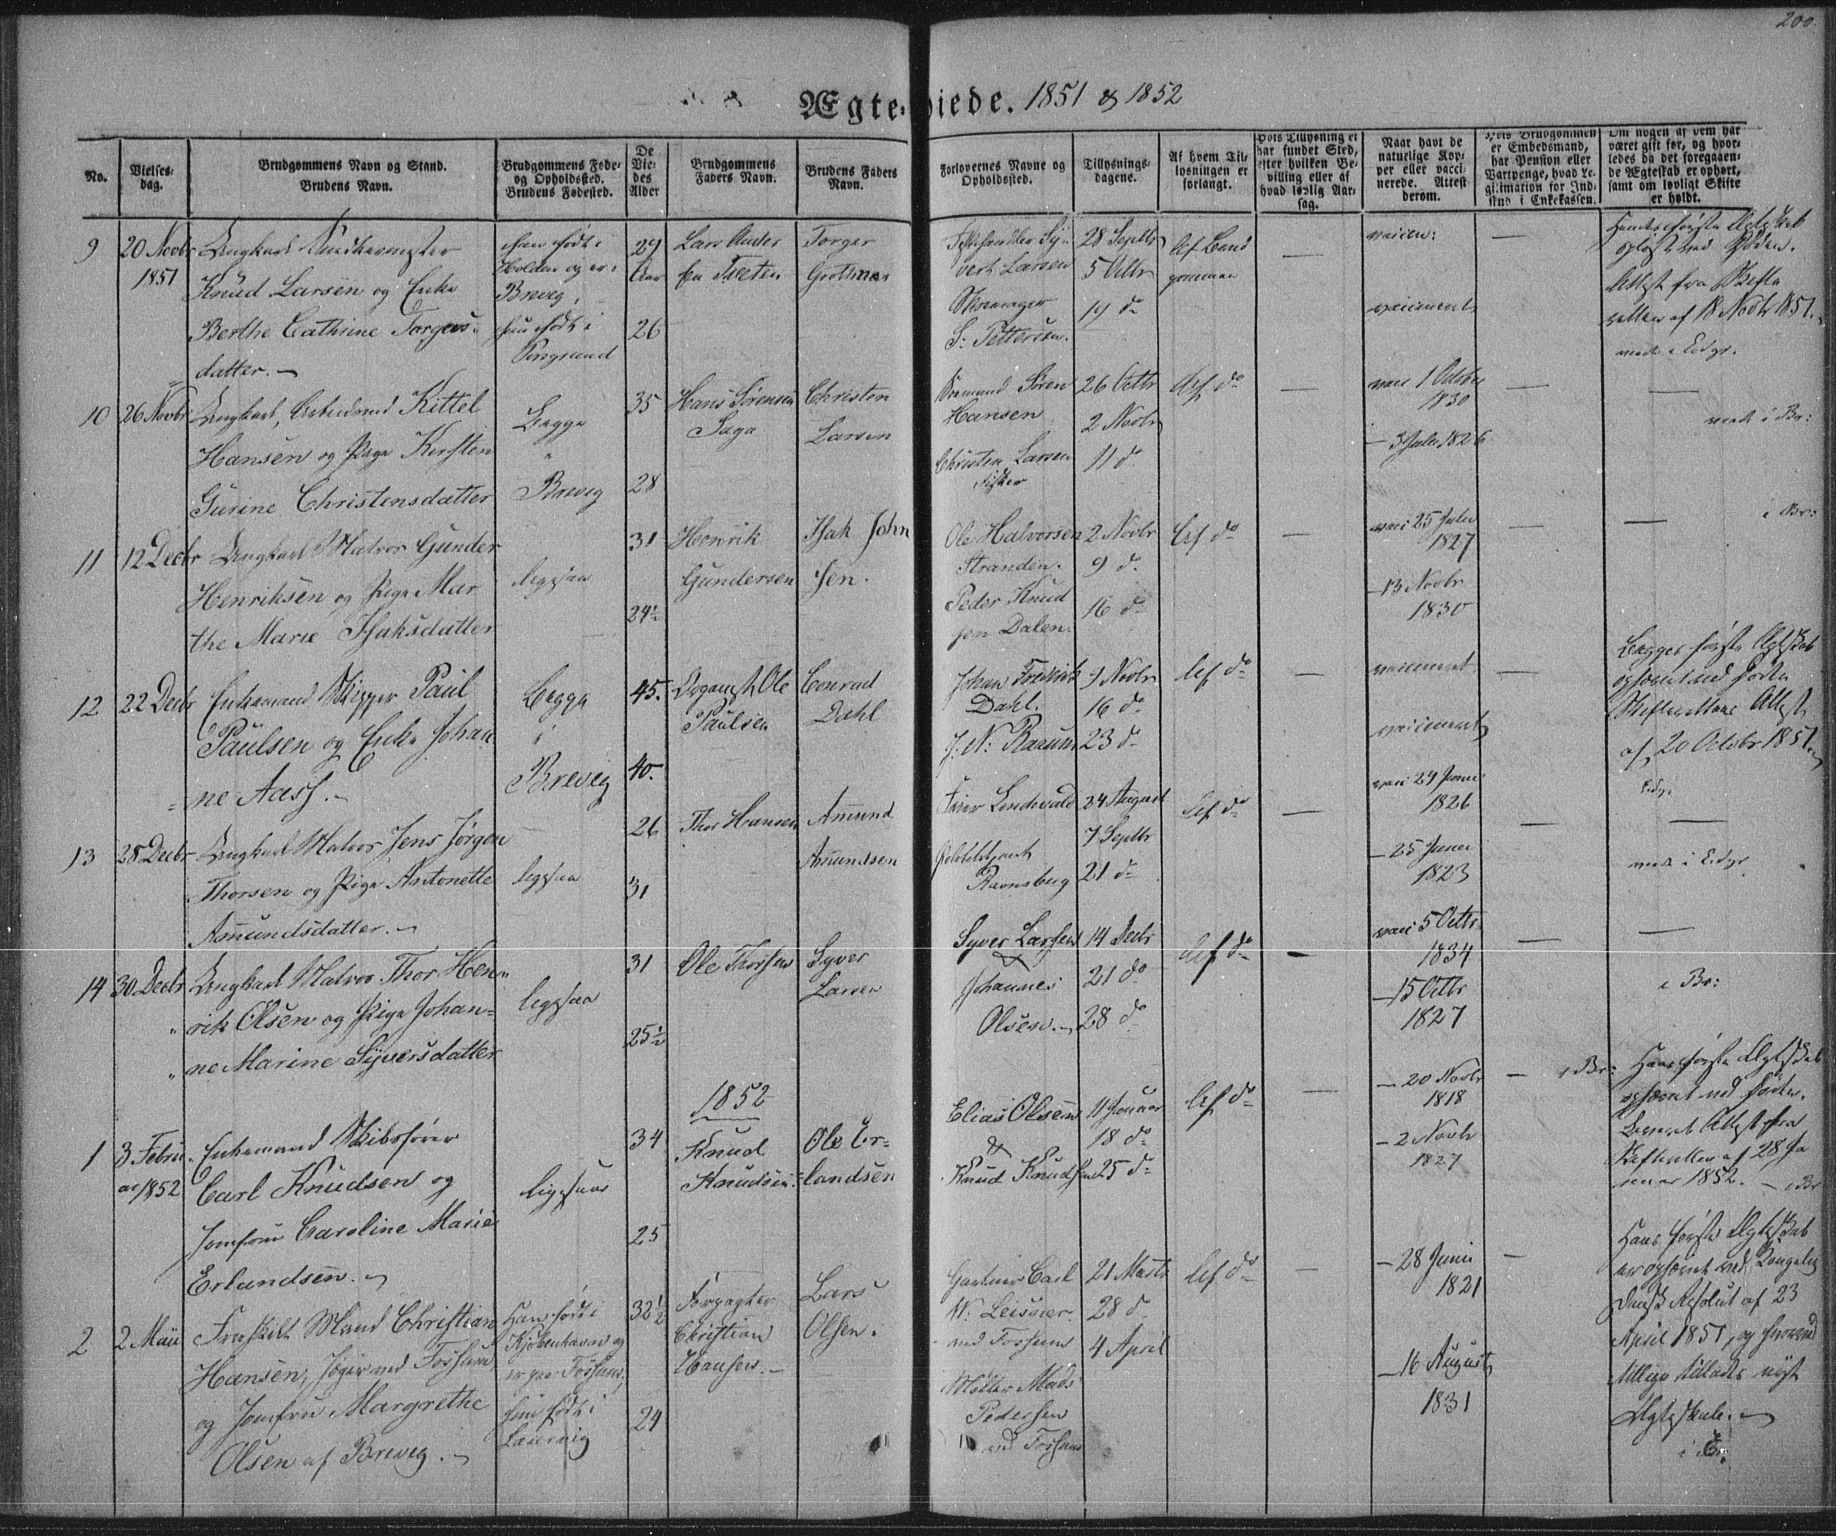 200.
Ægteviede. 1851 & 1852
No.
Vielses-
dag.
Brudgommens Navn og Stand.
Brudens Navn.
Brudgommens Føde-
og Opholdssted.
Brudens Fødested.
De
Vie-
des
Alder
Brudgommens
Faders Navn.
Brudens Faders
Navn.
Forlovernes Navne og
Opholdssted.
Tillysnings-
dagene.
Af hvem Til-
lysningen er
forlangt.
Hvis Tillysning ei
har fundet Sted,
efter hvilken Be-
villing eller af
hvad lovlig Aar-
sag.
Naar havt de
naturlige Kop-
per eller vacci-
nerede. Attest
derom.
Hvis Brudgommen
er Embedsmand,
har Pension eller
Vartpenge, hvad Le-
gitimation for Ind-
skud i Enkekassen.
Om nogen af dem har
været gift før, og hvor-
ledes da det foregaaen-
de Ægteskab er ophørt,
samt om lovligt Skifte
er holdt.
9
20 Novbr
1851
Ungkarl
Knud Larsen og Enke
Berthe Cathrine Torgers-
datter.
Han født i
Holden og er i
Brevig.
hun født i
Porsgrund
29
Aar
26
Lars Ander
sen Tveten
Torger
Vert Larsen
S: Pettersen.
28 Septbr
5 Octbr
19 do
Af Brud
gommen
vaccineret
Hendes første Ægteskab
opløst ved Døden.
Attest fra Skifte
retten af 18 Novbr 1851.
10
26 Novbr
Ungkarl, Arbeidsmd Kittel
Hansen og Pige Kirsten
Gurine Christensdatter
Begge
Brevig
35
28
Hans Sørensen
Saga
Christen
Larsen
Søren
Hansen
Christen Larsen
Fisker
26 Octbr
2 Novbr
11 do
Af do
vacc 1 Octbr
1830
- 3 Julii 1826
i Br:
11
12 Decbr
Ungkarl Matros Gunder
Henriksen og Pige Mar
the Marie Isaksdatter
ligesaa
31
24½
Henrik
Gundersen
Isak John
sen.
Ole Halvorsen
Stranden.
Peder Knud
sen Dalen.
2 Novbr
9 do
16 do
Af do
vacc 25 Julii
1827
- 13 Novbr
1830
i Br:
12
22 Decbr
Enkemand Skipper Paul
Paulsen og Enke Johan
ne Aass.
Begge
i
Brevig
45.
40.
Ole
Paulsen
Conrad
Dahl
Johan Fredrik
Dahl.
J: N: Raum
9 Novbr
16 do
23 do
Af do
vaccineret
vaccineret
Begges første Ægteskab
ophævet ved Døden
Skifterettens Attest
af 20 Octobr 1851.
13
28 Decbr
Ungkarl Matros Jens Jørgen
Thorsen og Pige Antonette
Amundsdatter.
ligesaa
26
31
Thor Hansen
Amund
Amundsen
Ravnsberg
24 August
7 Septbr
21 do
Af do
vacc 29 Juni
1826
- 25 Juni
1823
14
30 Decbr
Ungkarl Matros Thor Hen-
rik Olsen og Pige Johan-
ne Marine Syversdatter
ligesaa
31
25½
Ole Thorsen
Syver
Larsen
Syver Larsen
&
Johannes
Olsen.
14 Decbr
21 do
28 do
Af do
vacc 5 Octbr
1834
- 15 Octbr
1827
i Br:
1852
1
3 Febru
ar 1852
Enkemand Skibsfører
Carl Knudsen og
Jomfru Caroline Marie
Erlandsen.
ligesaa
34
25
Knud
Knudsen
Ole Er-
landsen
Elias Olsen
&
Knud Knudsen
11 Januar
18 do
25 do
Af do
- 20 Novbr
1818
- 2 Novbr
1827
i Br:
Hans første Ægteskab
ophævet ved Døden.
Attest fra
Skifteretten af 28 Ja
nuar 1852.
2
2 Mai
Fraskilt Mand Christian
Hansen, Jæger ved Fossum
og Jomfru Margrethe
Olsen af Brevig.
Han født i
Kjøbenhavn og
er paa Fossum,
hun født i
Laurvig
32½
24
Forpagter
Christian
Hansen.
Lars
Olsen.
Gartner Carl
W. Leisner
ved Fossum
Møller Mads
Pedersen
ved Fossum
21 Marts
28 do
4 April
Af do
- 28 Juni
1821
- 16 August
1831
Hans første Ægteskab
er ophævet ved Kongelig
Dansk Resolut af 23
April 1851, og
tillades nyt
Ægteskab.